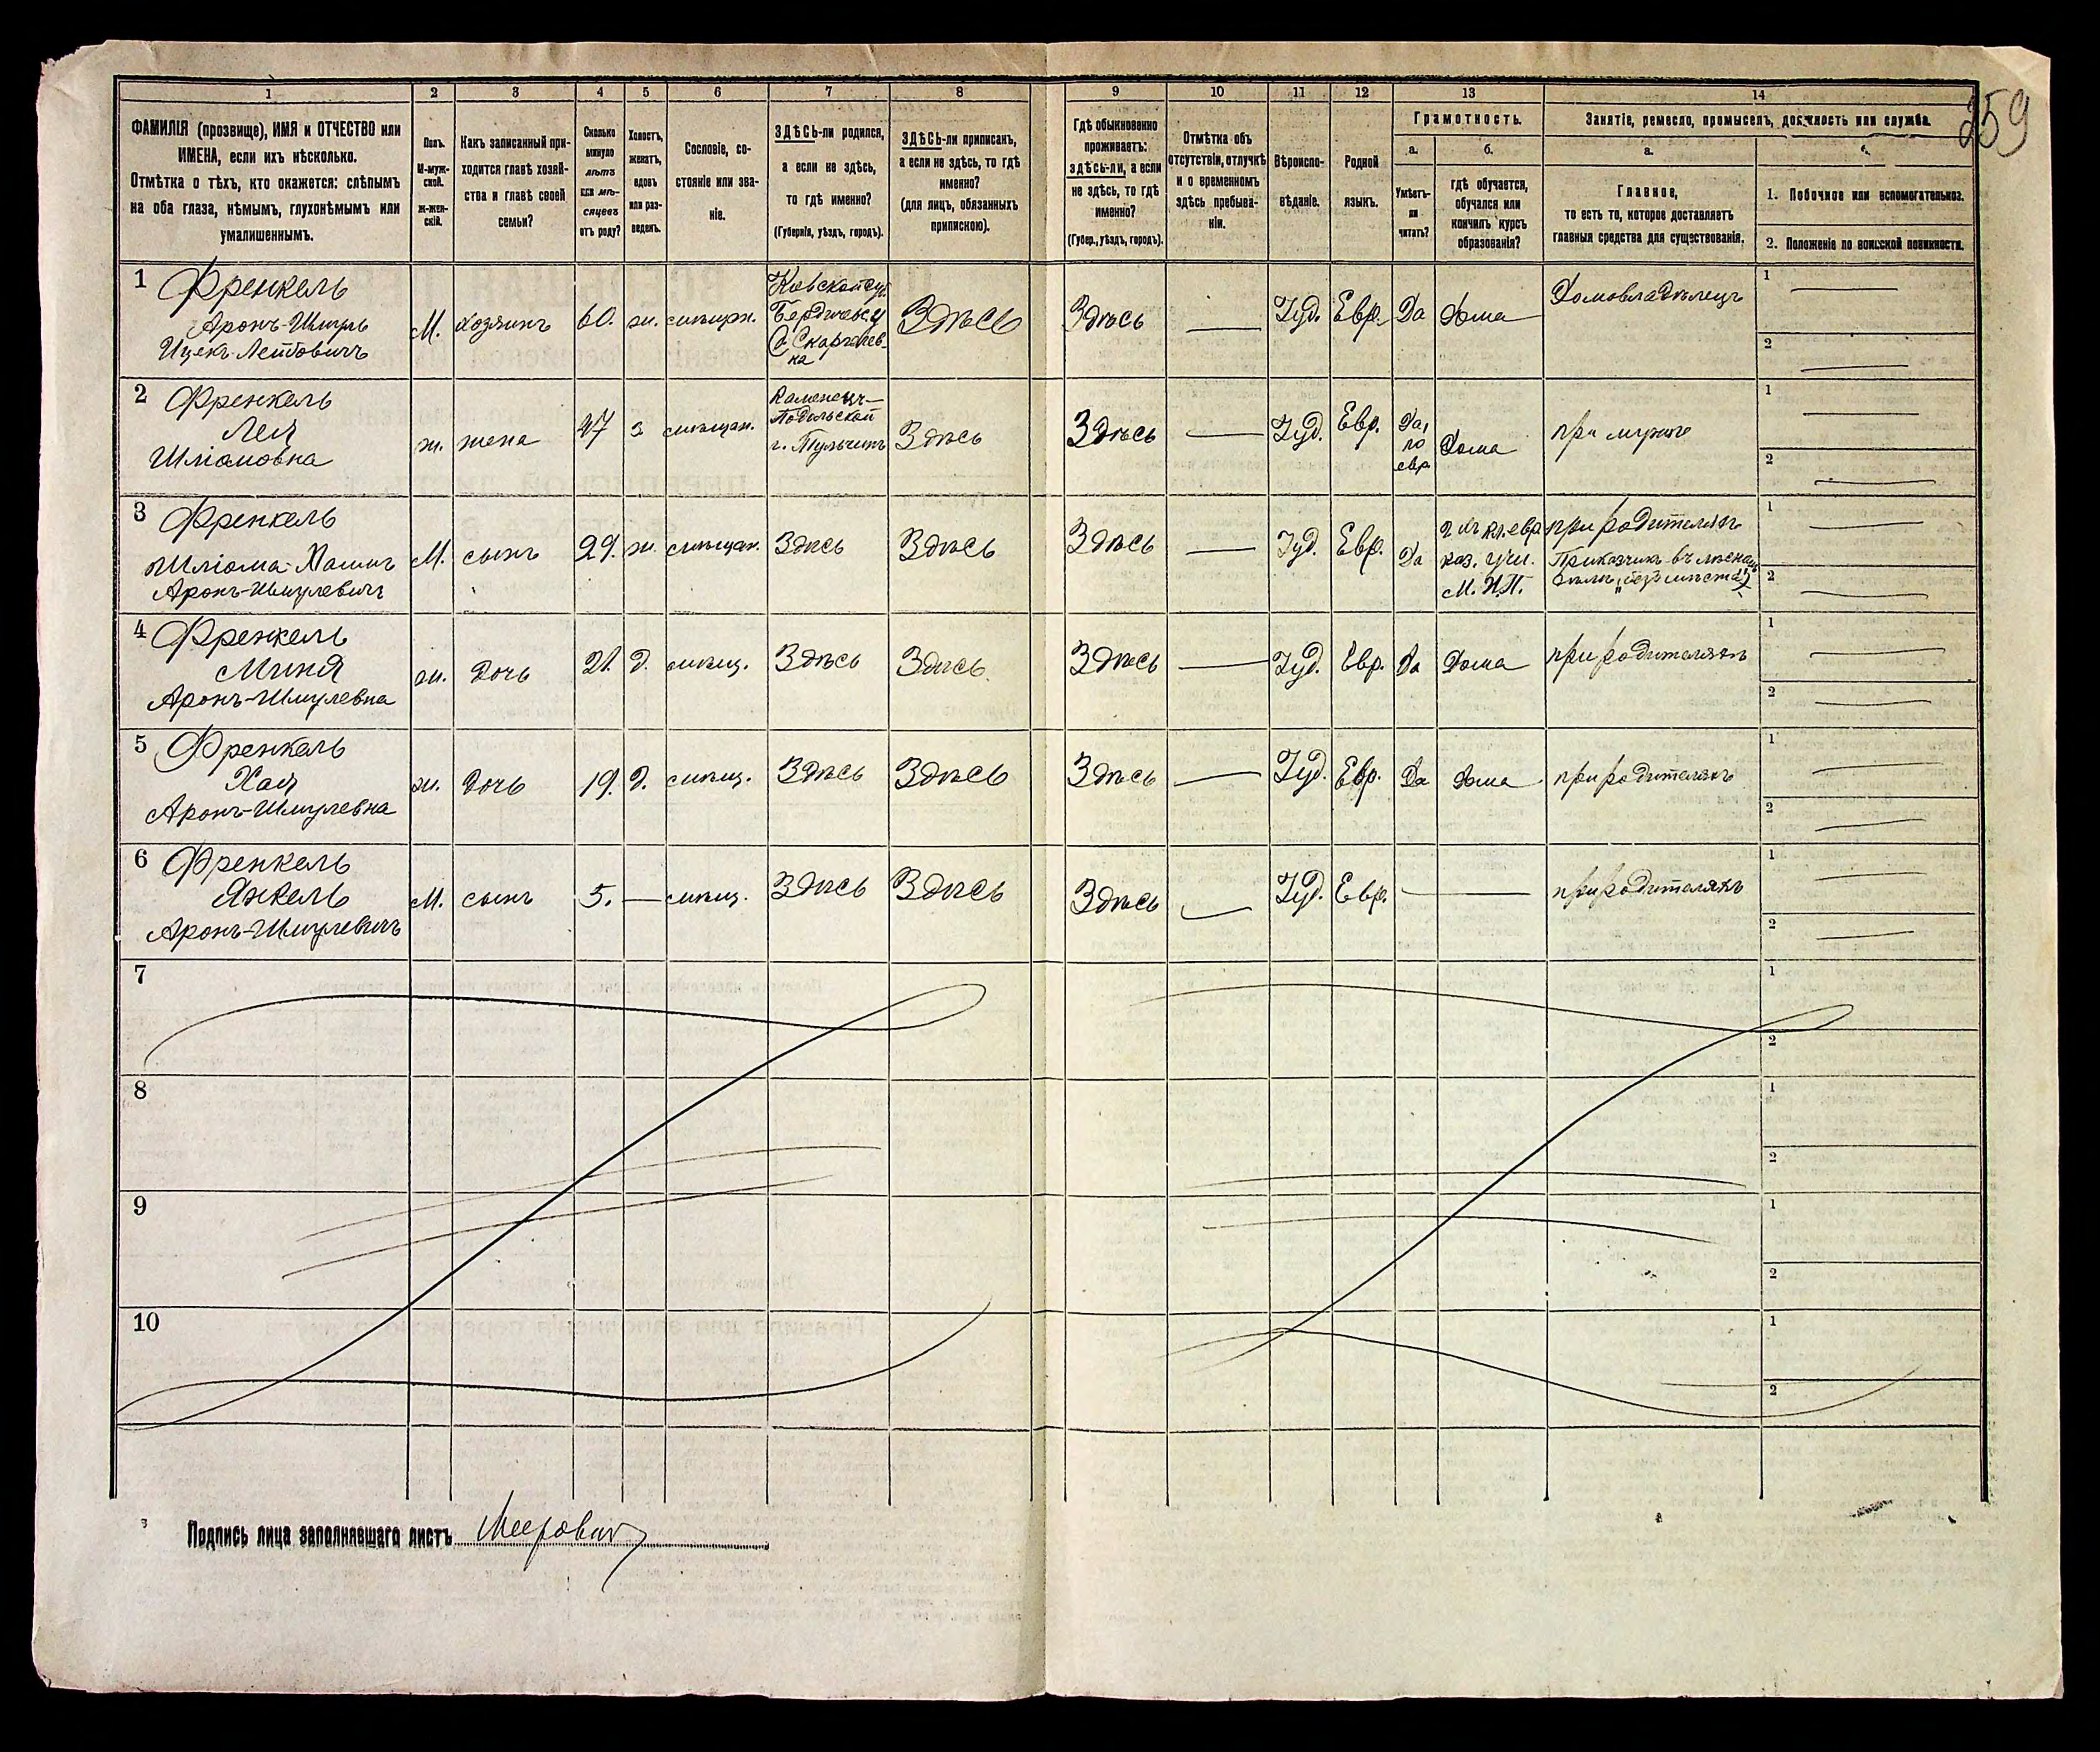 259
1 2 3 4 5 6 7 8 9 10 11 12 13 14
ФАМИЛІЯ (прозвище), ИМЯ и ОТЧЕСТВО или
ИМЕНА, если ихъ нѣсколько.
Отмѣтка о тѣхъ, кто окажется: слѣпымъ
на оба глаза, нѣмымъ, глухонѣмымъ или
умалишеннымъ.
Полъ.
М-муж-
ской.
Ж-жен-
скій.
Какъ записанный при-
ходится главѣ хозяй-
ства и главѣ своей
семьи?
Сколько
минуло
лѣтъ
или мѣ-
сяцевъ
отъ роду?
Холостъ,
женатъ,
вдовъ
или раз-
веденъ.
Сословіе, со-
стояніе или зва-
ніе.
ЗДѢСЬ-ли родился,
а если не здѣсь,
то гдѣ именно?
(Губернія, уѣздъ, городъ).
ЗДѢСЬ-ли приписанъ,
а если не здѣсь, то гдѣ
именно?
(для лицъ, обязанныхъ
припискою).
Гдѣ обыкновенно
проживаетъ:
здѣсь-ли, а если
не здѣсь, то гдѣ
именно?
(Губер., уѣздъ, городъ).
Отмѣтка объ
отсутствіи, отлучкѣ
и о временномъ
здѣсь пребыва-
ніи.
Вѣроиспо-
вѣданіе.
Родной
языкъ.
Грамотность.
а.
Умѣетъ-
ли
читать?
б.
гдѣ обучается,
обучался или
кончилъ курсъ
образованія?
Занятіе, ремесло, промыселъ, должность или служба.
а.
Главное,
то есть то, которое доставляетъ
главныя средства для существованія.
1. Побочное или вспомогательное.
2. Положеніе по воинской повинности.
1 Френкель
Аронъ-Шмуль
Ицекъ-Лейбовичъ
М. хозяинъ 60. ж.
Бердичевск
Здѣсь Здѣсь — Іуд. Евр. Да дома Домовладѣлецъ
1 —
2 —
2 Френкель
Лея
Шліомовна
ж. жена 47 з мѣщан.
Каменецъ-
Подольской
г. Тульчинъ
Здѣсь Здѣсь — Іуд. Евр.
Да,
по
евр
Дома при мужѣ
1 —
2 —
3 Френкель
Шліома-Хаимъ
Аронъ-Шмулевичъ
М. сынъ 29. ж. мѣщан. Здѣсь Здѣсь Здѣсь — Іуд. Евр. Да
каз. учи.
М.Н.П.
при родителяхъ
Приказчикъ въ лѣсномъ
дѣлѣ „безъ мѣста"
1 —
2 —
4 Френкель
Миня
Аронъ-Шмулевна
ж. дочь 21. д. мѣщ. Здѣсь Здѣсь. Здѣсь — Іуд. Евр. Да Дома при родителяхъ
1 —
2 —
5 Френкель
Хая
Аронъ-Шмулевна
ж. дочь 19. д. мѣщ. Здѣсь Здѣсь Здѣсь — Іуд. Евр. Да дома при родителяхъ
1 —
2 —
6 Френкель
Янкель
Аронъ-Шмулевичъ
М. сынъ 5. — мѣщ. Здѣсь Здѣсь Здѣсь — Іуд. Евр. — — при родителяхъ
1 —
2 —
7
1
2
8
1
2
9
1
2
10
1
2
Подпись лица заполнявшаго листъ Меерович